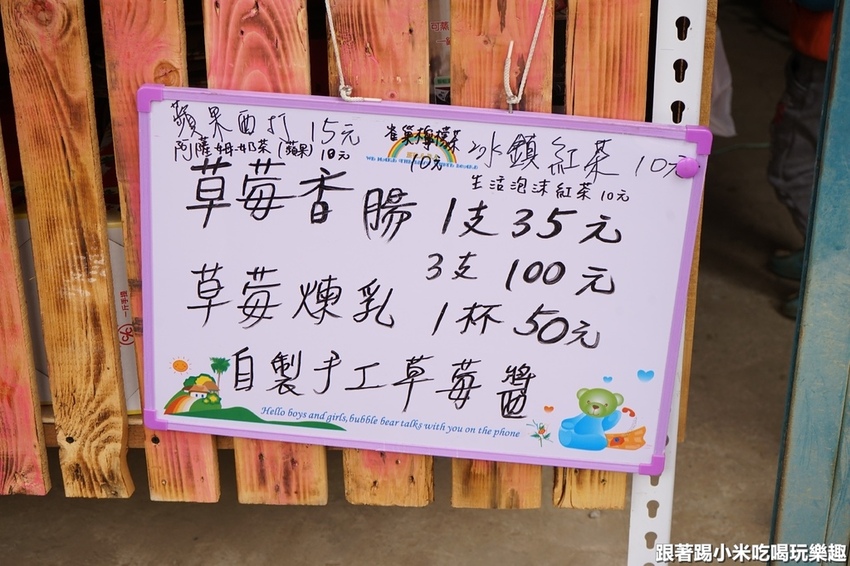 蘋果西打 15元
雀巢檸檬茶 10元
冰鎮紅茶 10元
阿薩姆奶茶(蘋果)10元
生活泡沫紅茶 10元
草莓香腸 1支 35元
3支 100元
草莓煉乳 1杯 50元
自製手工草莓醬
Hello boys and girls, bubble bear talks with you on the phone
跟著踢小米吃喝玩樂趣